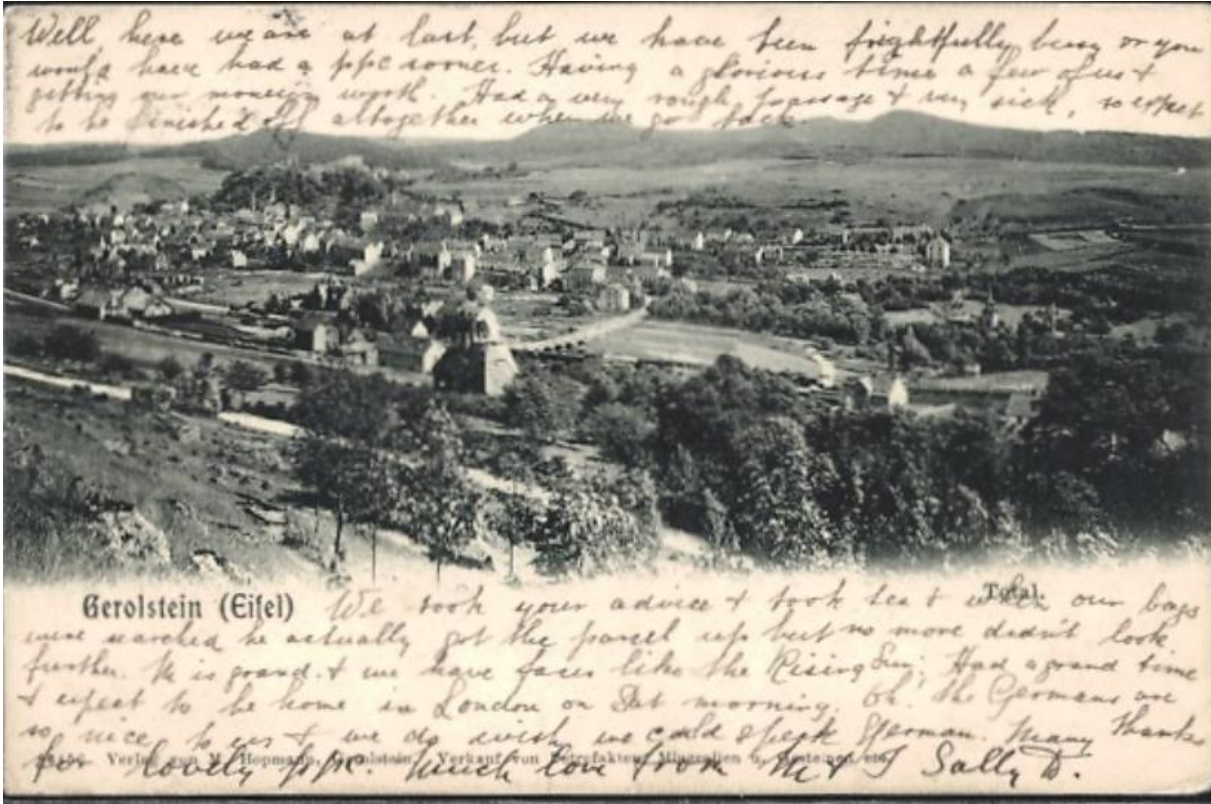 Well, here we are at last, but we have been frightfully busy or you
would have had a ppc sooner. Having a glorious time a few of us &
getting our money's worth. Had a very rough passage & very sick, so expect
to be finished off altogether when we go back.
Gerolstein (Eifel)
Total.
We took your advice & took tea & when our bags
were searched he actually got the parcel up but no more didn't look
further. is grand & we have faces like the Rising Sun; Had a grand time
& expect to be home in London on Sat morning. Oh. the Germans are
so nice to us & we do wish we could speak German. Many thanks
Verlag von M. Hopmann, Gerolstein. Verkauf von Petrefakten, Mineralien u. Gesteinen etc.
for lovely ppc. Much love from Sally D.